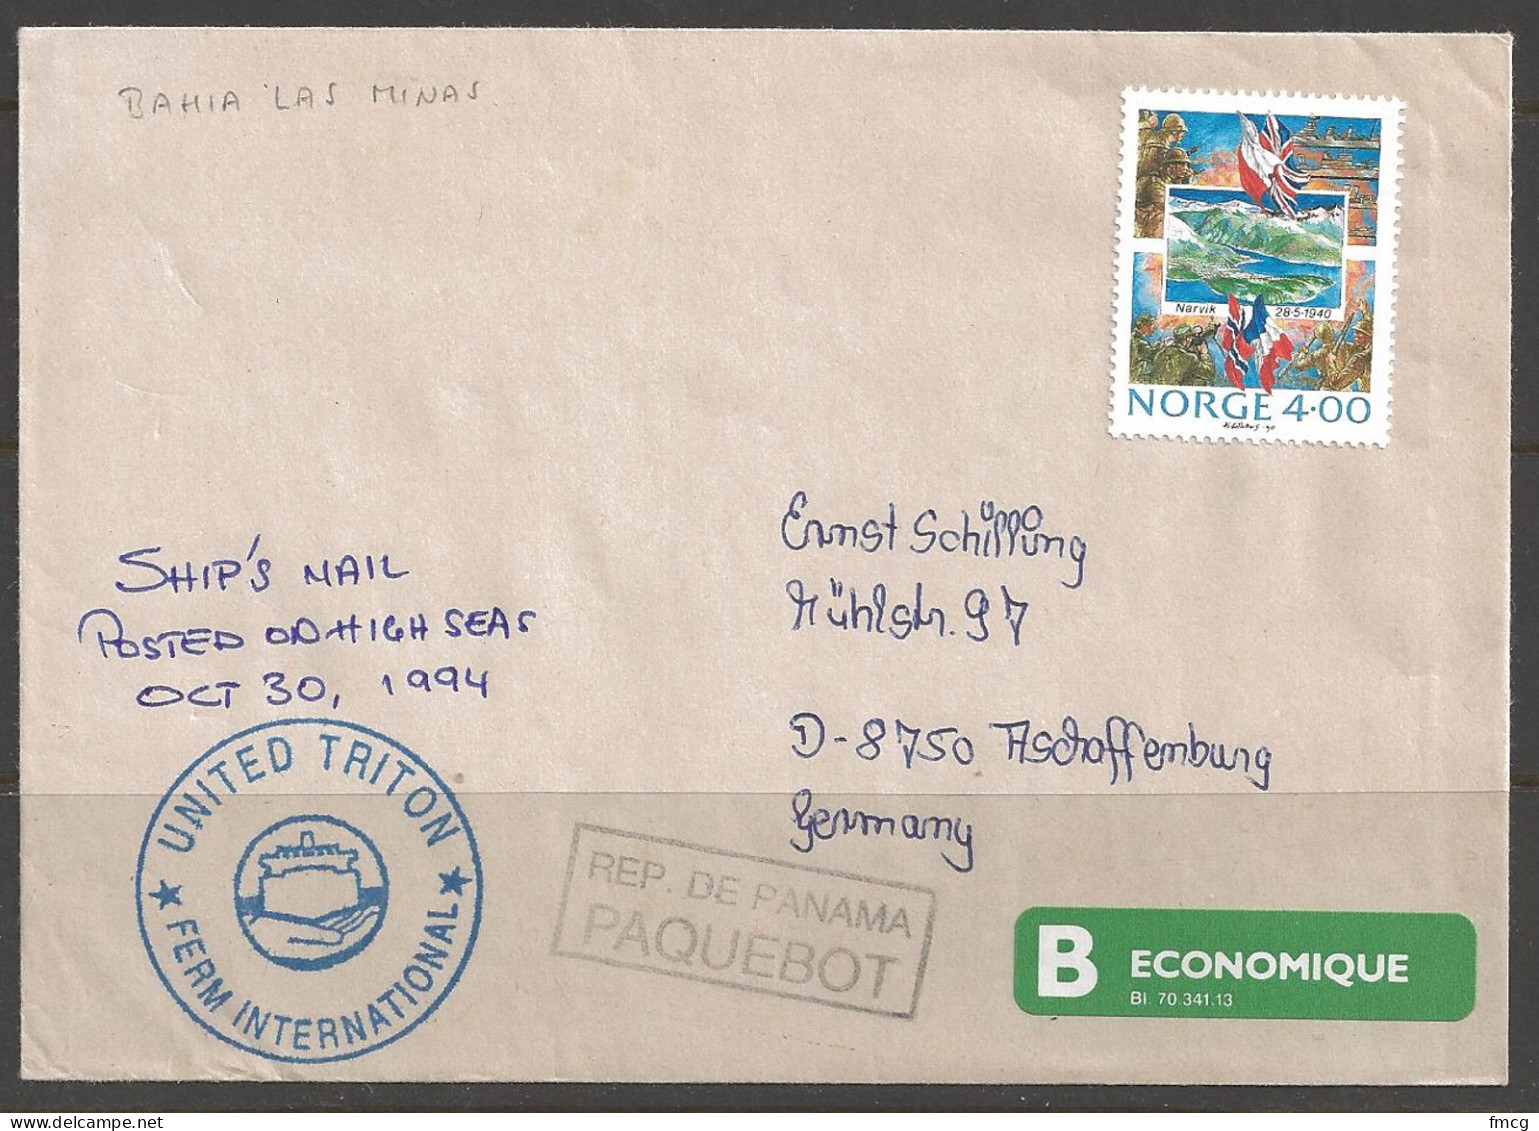 BAHIA LAS MINAS
Narvik 28·5·1940
NORGE 4·00
Ernst Schilling
Mühlstr. 97
SHIP'S MAIL
POSTED ON HIGH SEAS
OCT 30, 1994
D-8750 Aschaffenburg
Germany
UNITED TRITON
FERM INTERNATIONAL
REP. DE PANAMA
PAQUEBOT
B ECONOMIQUE
BI 70.341.13
www.delcampe.net
fmcg